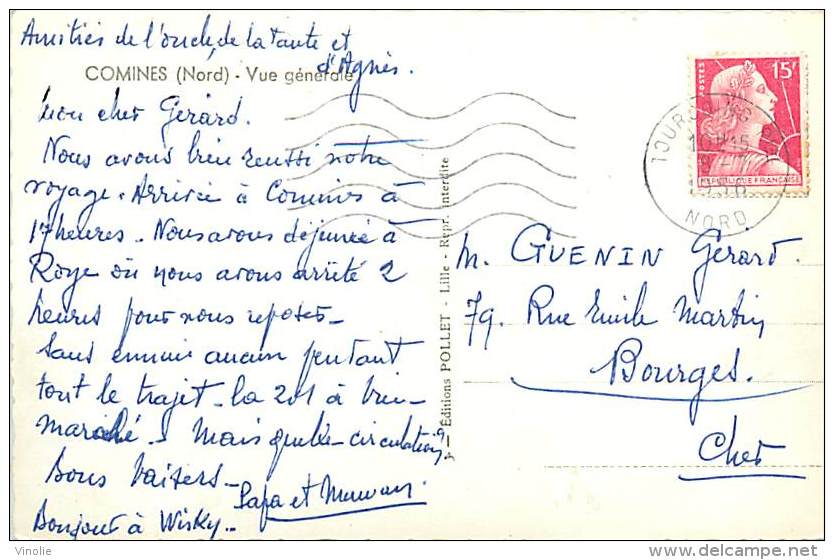 Amitiés de l'oncle, de la tante et
d'Agnès.
COMINES (Nord) - Vue générale
Mon cher Gérard.
Nous avons bien réussi notre
voyage. Arrivée à Comines à
17 heures. Nous avons déjeuné à
Roye où nous avons arrêté 2
heures pour nous reposer_
Sans ennuie aucun pendant
tout le trajet_ la 201 à bien
marché_. Mais quelle circulation,
Bons baisers_
Papa et Maman
Bonjour à Wisky_..
Editions POLLET - Lille - Repr. interdite
POSTES
15F
REPUBLIQUE FRANÇAISE
TOURCOING
NORD
M. GUENIN Gérard.
79. Rue Emile Martin
Bourges.
Cher
Vinolie
http://www.delcampe.net